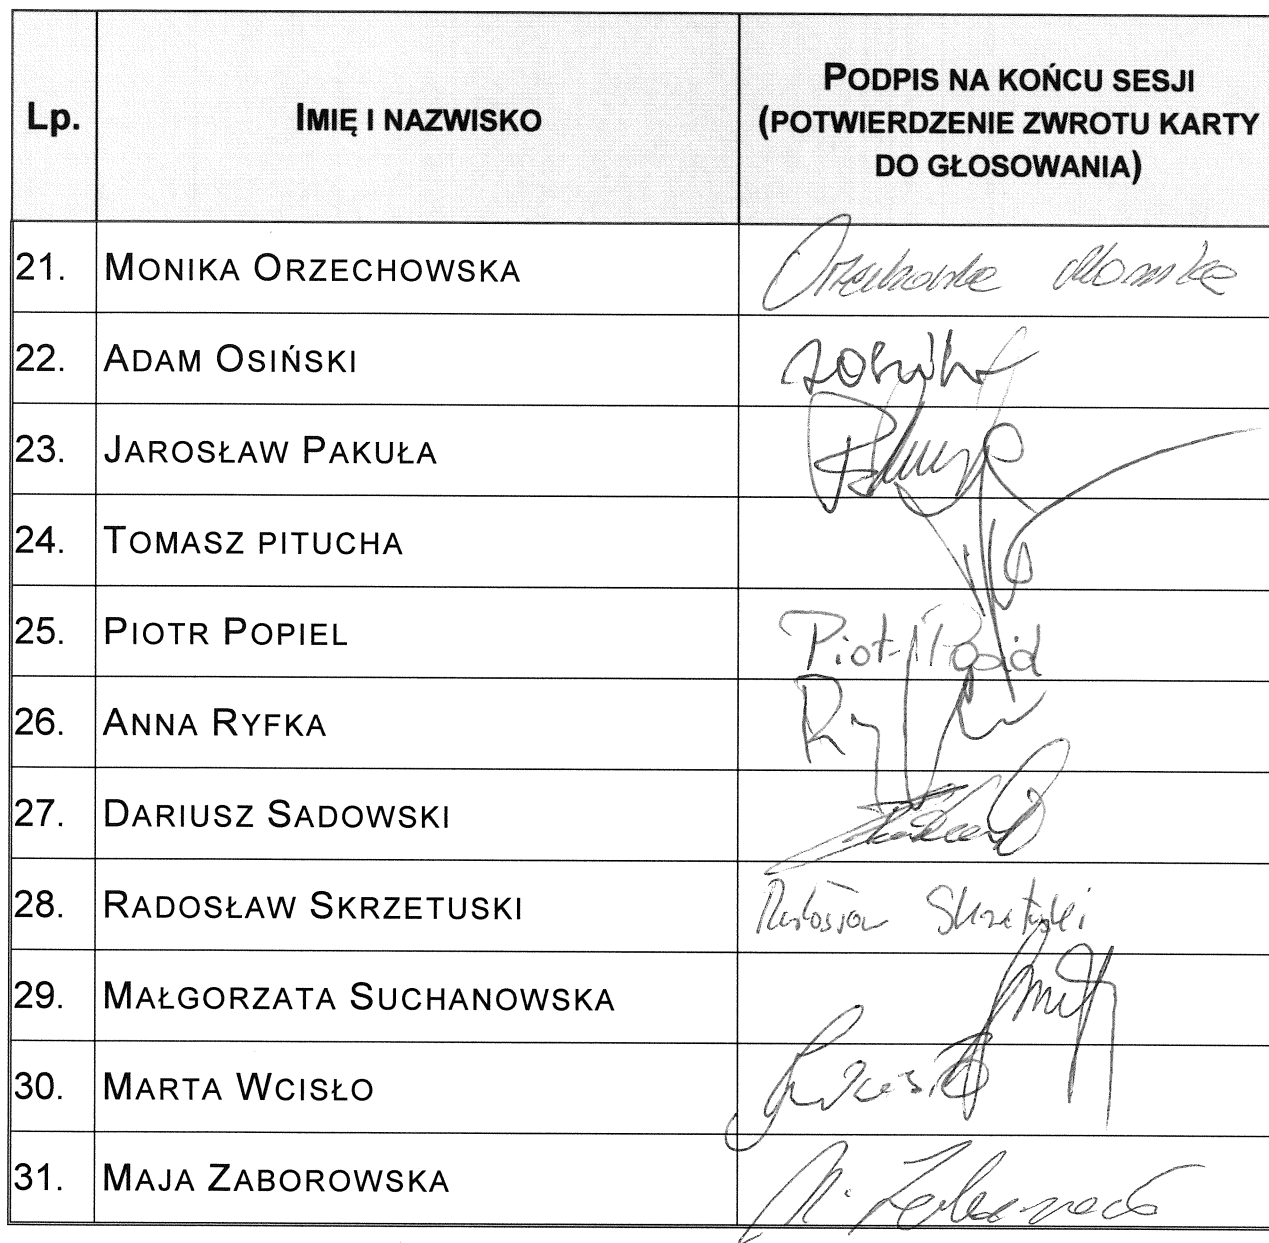 Lp.
IMIĘ I NAZWISKO
PODPIS NA KOŃCU SESJI
(POTWIERDZENIE ZWROTU KARTY
DO GŁOSOWANIA)
21. MONIKA ORZECHOWSKA Orzechowska Monika
22. ADAM OSIŃSKI
23. JAROSŁAW PAKUŁA
24. TOMASZ PITUCHA
25. PIOTR POPIEL Piotr Popiel
26. ANNA RYFKA
27. DARIUSZ SADOWSKI
28. RADOSŁAW SKRZETUSKI Radosław Skrzetuski
29. MAŁGORZATA SUCHANOWSKA
30. MARTA WCISŁO
31. MAJA ZABOROWSKA M. Zaborowska